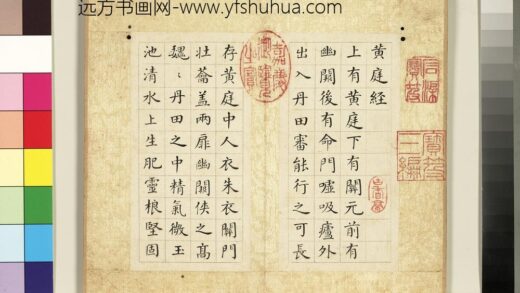 远方书画网-www.yfshuhua.com
黄庭経
上有黄庭下有關元前有
幽闕後有命門噓吸廬外
出入丹田審能行之可長
存黄庭中人衣朱衣關門
壯蘥蓋兩扉幽闕俠之高
巍〻丹田之中精氣微玉
池清水上生肥靈根堅固
嘉慶御覽之寶
石渠寶笈
寶笈三編